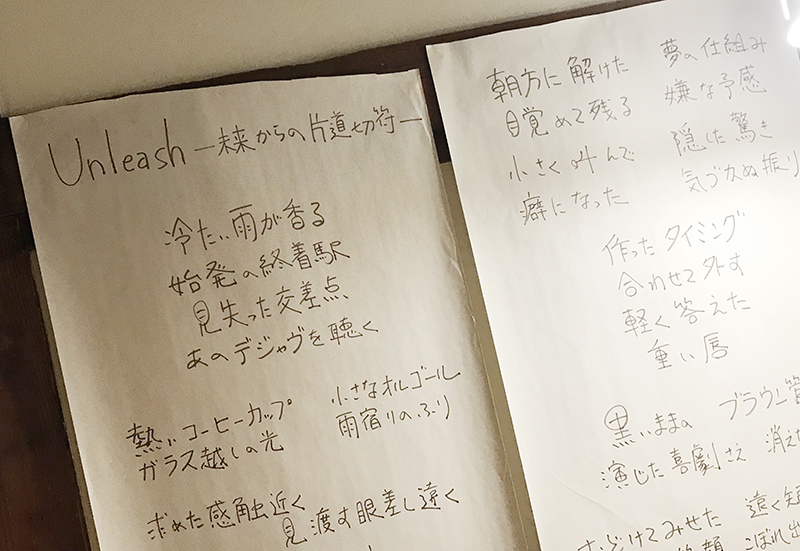 Unleash ―未来からの片道切符―
冷たい雨が香る
始発の終着駅
見失った交差点
あのデジャヴを聴く
熱いコーヒーカップ 小さなオルゴール
ガラス越しの光 雨宿りのふり
求めた感触近く
見渡す眼差し遠く
朝方に解けた 夢の仕組み
目覚めて残る 嫌な予感
小さく叫んで 隠した驚き
癖になった 気づかぬ振り
作ったタイミング
合わせて外す
軽く答えた
重い唇
黒いままの ブラウン管
演じた喜劇さえ 消え
ふざけてみせた 遠く
こぼれ出